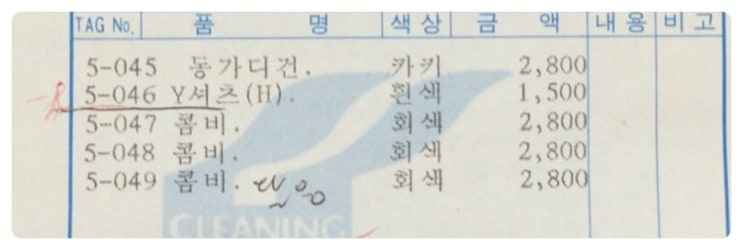 TAG No. 품 명 색상 금 액 내용 비고
5-045 동가디건. 카키 2,800
5-046 Y셔츠(H). 흰색 1,500
5-047 콤비. 회색 2,800
5-048 콤비. 회색 2,800
5-049 콤비. 회색 2,800
CLEANING